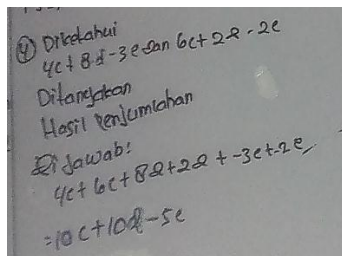 ④ Diketahui
4c + 8d - 3e dan 6c + 2d - 2e
Ditanyakan
Hasil Penjumlahan
Di Jawab:
4c + 6c + 8d + 2d + -3e + -2e
= 10c + 10d - 5e